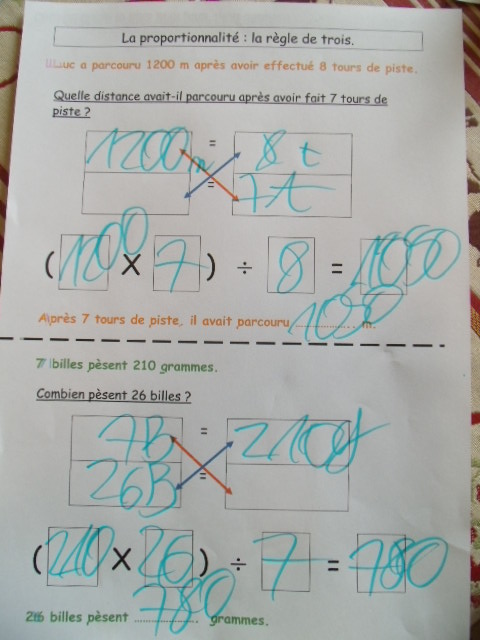 La proportionnalité : la règle de trois.
Luc a parcouru 1200 m après avoir effectué 8 tours de piste.
Quelle distance avait-il parcouru après avoir fait 7 tours de
piste ?
1200 m = 8 t
= 7 t
( 1200 X 7 ) ÷ 8 = 1050
Après 7 tours de piste, il avait parcouru 1050 m.
7 billes pèsent 210 grammes.
Combien pèsent 26 billes ?
7B = 210g
26B =
( 210 X 26 ) ÷ 7 = 780
26 billes pèsent 780 grammes.